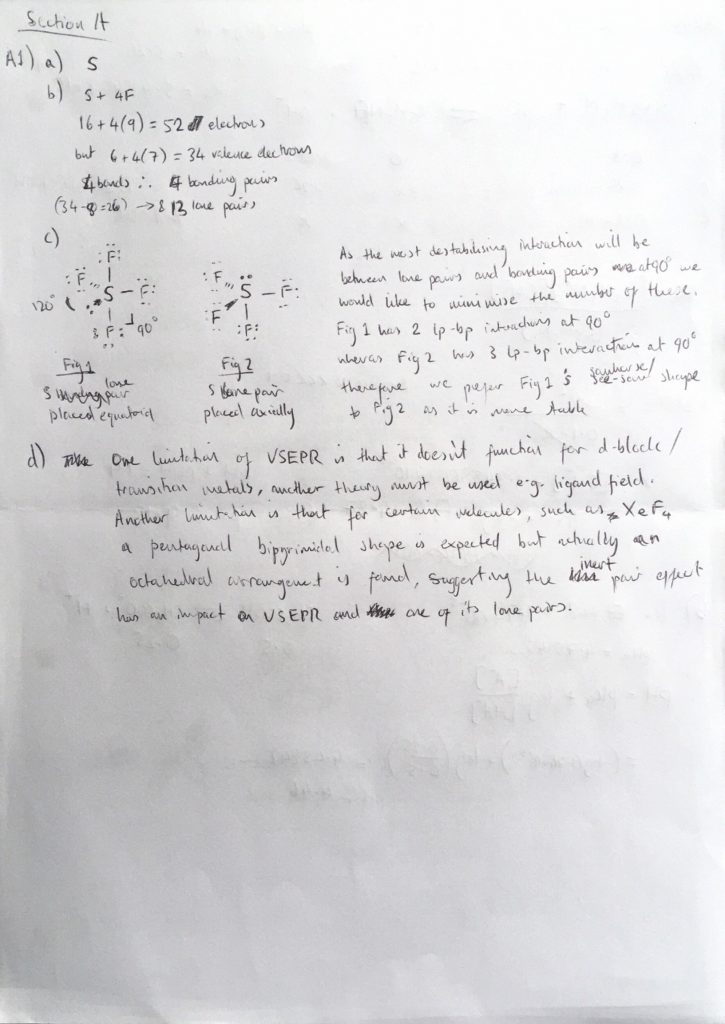 Section A
A1) a) S
b) S + 4F
16 + 4(9) = 52 electrons
but 6 + 4(7) = 34 valence electrons
4 bonds ∴ 4 bonding pairs
(34 - 8 = 26) → 13 lone pairs
c)
F
F S - F
120°
F 90°
Fig 1
S lone pair
placed equatorial
F S - F
F F
Fig 2
S lone pair
placed axially
As the most destabilising interaction will be
between lone pairs and bonding pairs at 90° we
would like to minimise the number of these.
Fig 1 has 2 lp-bp interactions at 90°
whereas Fig 2 has 3 lp-bp interactions at 90°
therefore we prefer Fig 1's sawhorse/
see-saw shape
to Fig 2 as it is more stable
d) One limitation of VSEPR is that it doesn't function for d-block /
transition metals, another theory must be used e.g. ligand field.
Another limitation is that for certain molecules, such as XeF
a pentagonal bipyrimidal shape is expected but actually an
octahedral arrangement is found, suggesting the inert pair effect
has an impact on VSEPR and one of its lone pairs.